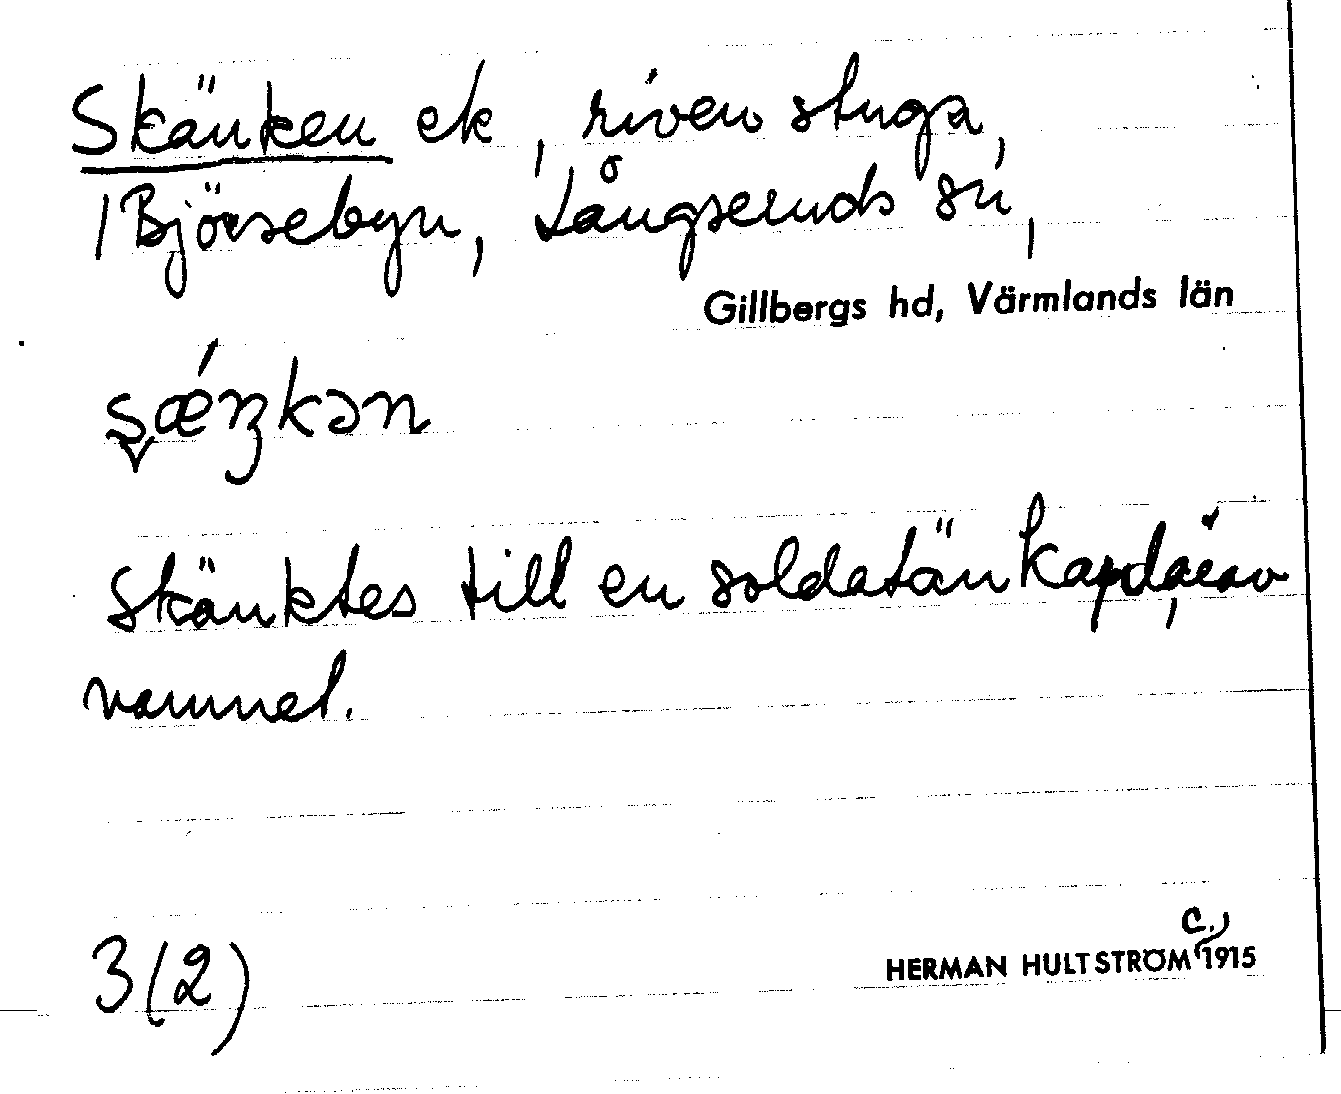 Skänken ek, riven stuga,
/Björsebyn, Långseruds sn,
Gillbergs hd, Värmlands län
skänktes till en soldatänka, därav
namnet.
3(2)
HERMAN HULTSTRÖM c. 1915